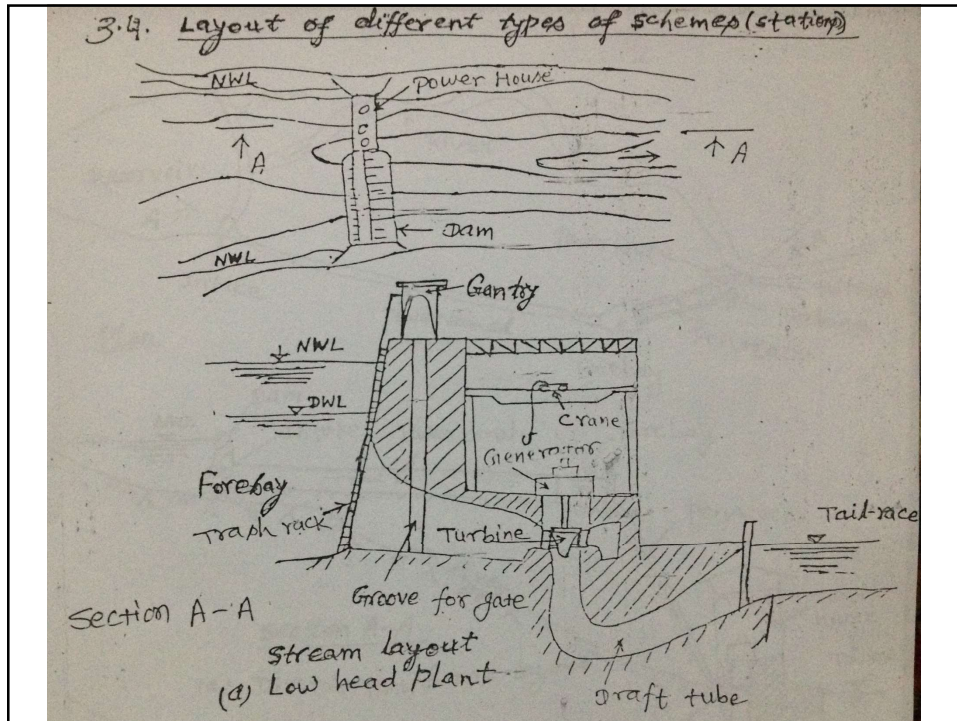 3.4. Layout of different types of schemes (stations)
NWL
Power House
A
A
Dam
NWL
Gantry
NWL
DWL
Crane
Generator
Forebay
Trash rack
Turbine
Tail-race
Groove for gate
Section A-A
Stream layout
(a) Low head plant
Draft tube